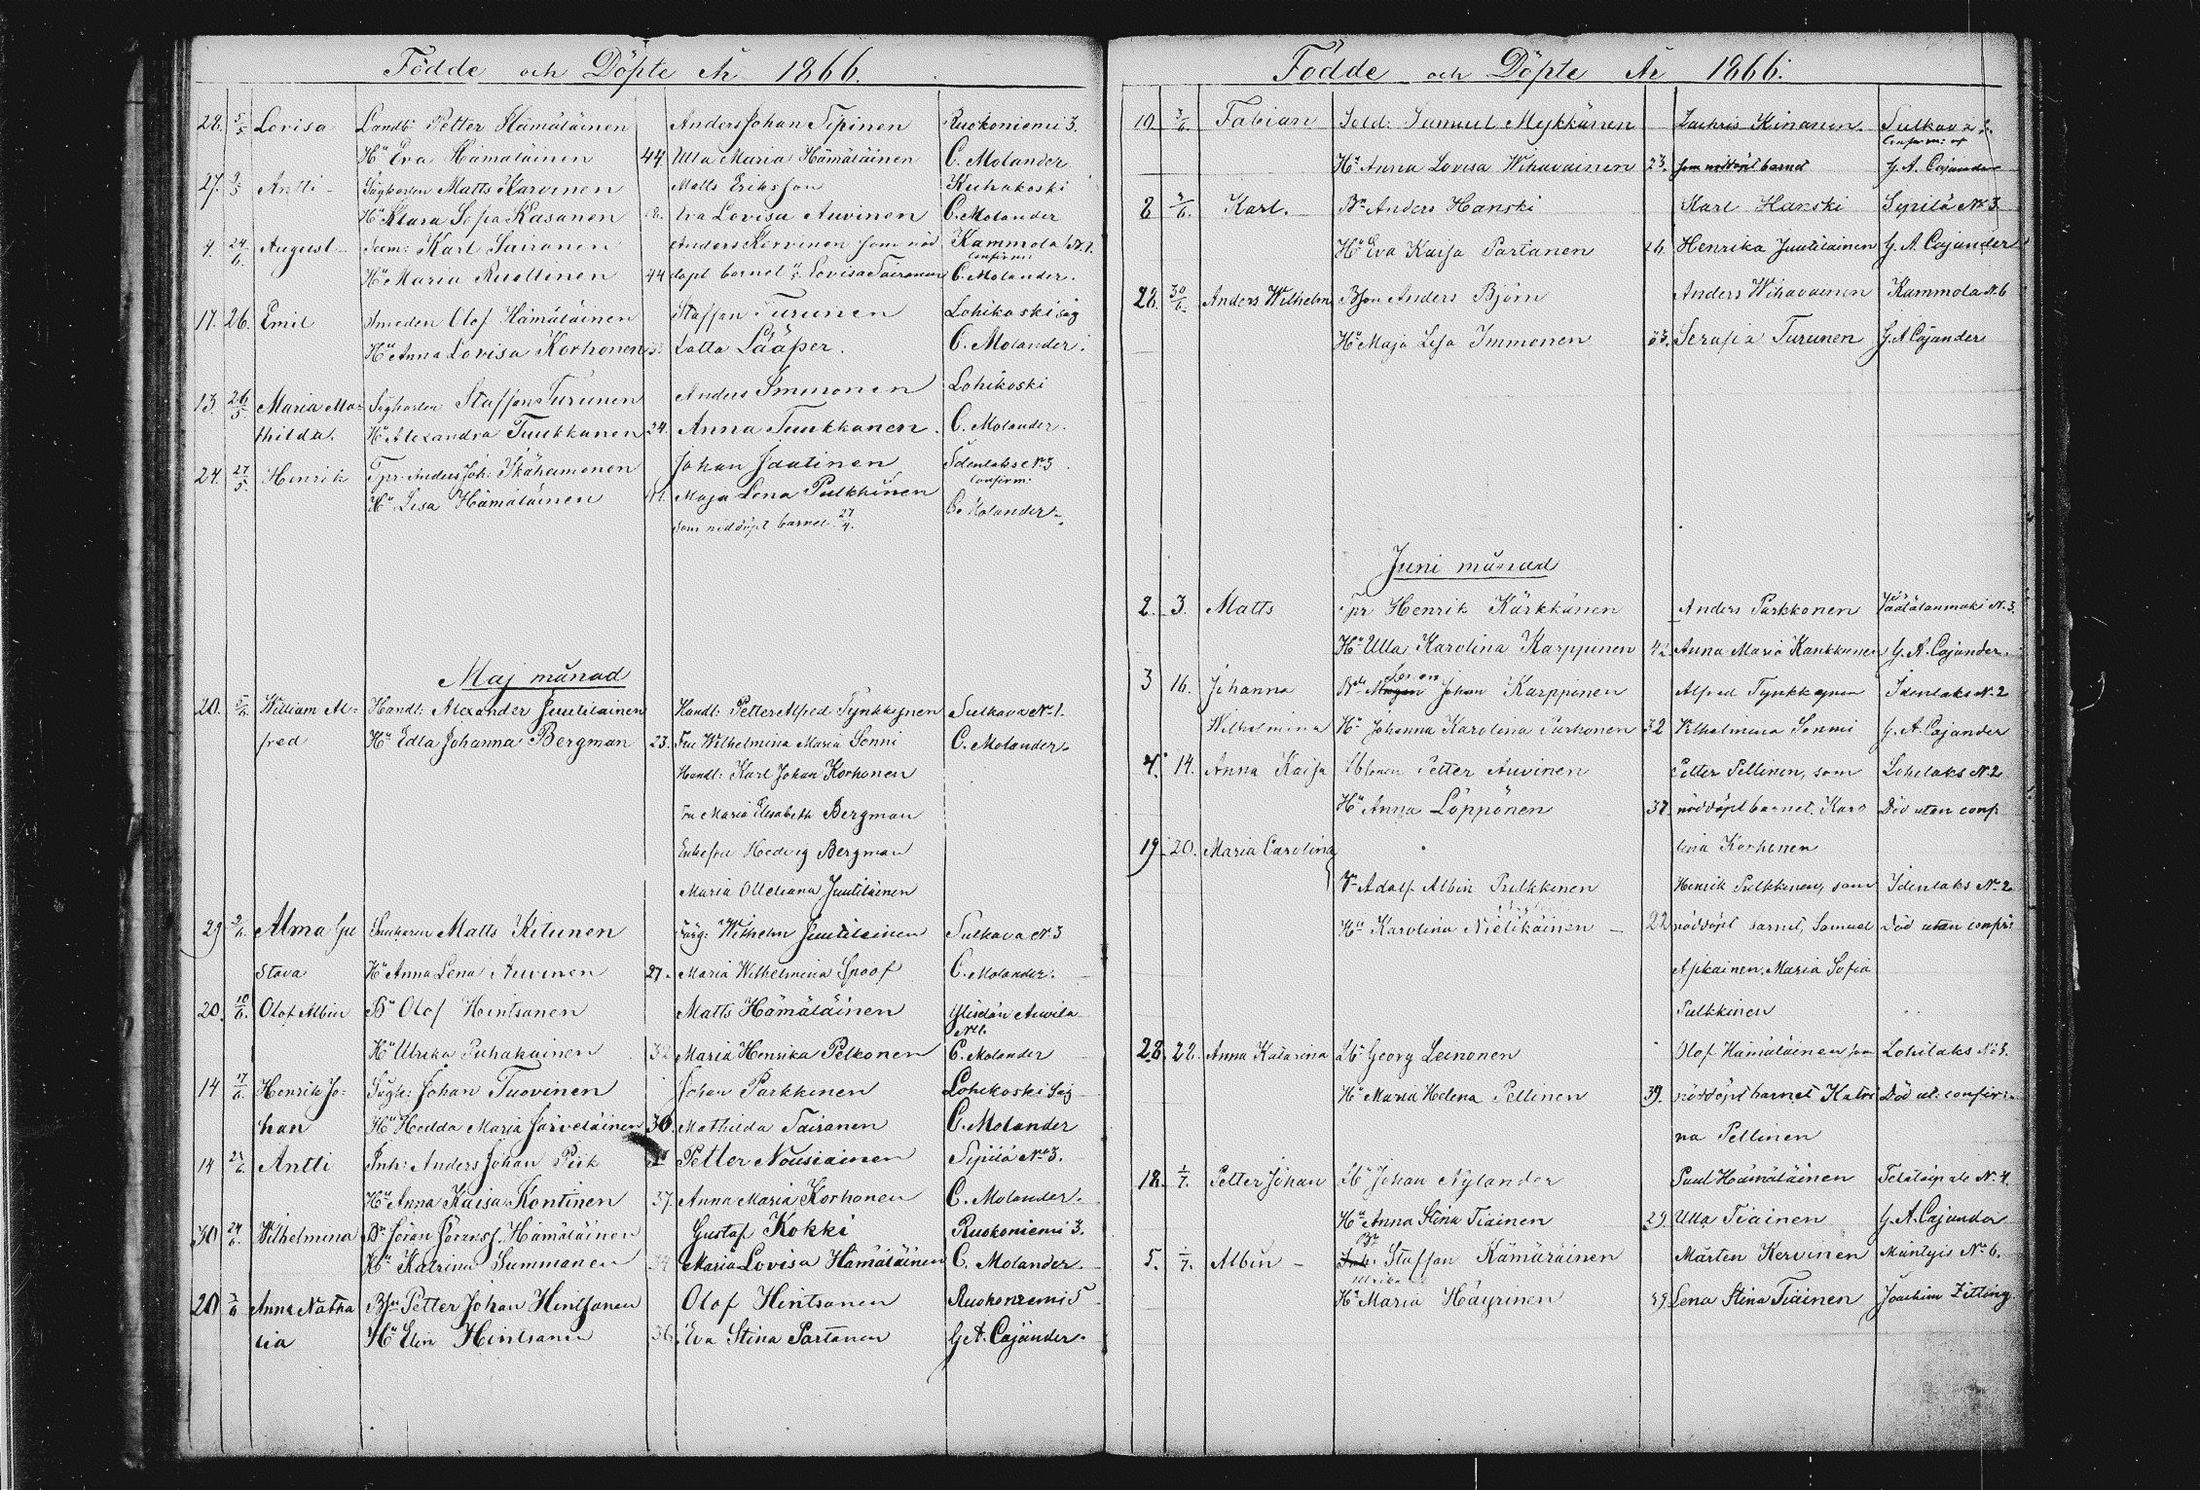 Födde och Döpte År 1866.
28. 5/5 Lovisa Landb: Petter Hämäläinen Anders Johan Tipinen Ruokoniemi 3.
Hu Eva Hämäläinen 44 Ulla Maria Hämäläinen C. Molander
27. Antti Matts Karvinen Matts Eriksson Kuhakoski
Hu Klara Sofia Kasanen Eva Lovisa Auvinen C. Molander
24/6 August Karl Sairanen Anders Kervinen som nöd Kammola
Confirm:
Hu Maria Ruottinen 44 döpt barnet Lovisa Sairanen C. Molander.
17. 26. Emil Smeden Olof Hämäläinen Staffan Turunen Lohikoski såg
Hu Anna Lovisa Korhonen Lotta Lääper. C. Molander.
13. 26/5 Maria Ma- Staffan Turunen Anders Immonen Lohikoski
thilda. Hu Alexandra Tuukkanen 24. Anna Tuukkanen. C. Molander.
24. 27/5. Henrik Tpr Anders Joh: Ikäheimonen Johan Jaatinen Idenlaks N:3
Confirm:
Hu Lisa Hämäläinen 41. Maja Lena Pulkkinen C. Molander.
som nöddöpt barnet 27/4.
Maj månad
20. 5/6. William Al- Handl: Alexander Juutilainen Handl: Petter Alfred Tynkkynen Sulkava N:1.
fred Hu Edla Johanna Bergman 23. Fru Wilhelmina Maria Sonni C. Molander.
Handl: Karl Johan Korhonen
Fru Maria Elisabeth Bergman
Enkefru Hedvig Bergman
Maria Juutilainen
29 9/6. Alma Gu Matts Kitunen Färg: Wilhelm Juutilainen Sulkava N:3
stava Hu Anna Lena Auvinen 27. Maria Wilhelmina Spoof C. Molander.
20. 10/6. Olof Albin Bn Olof Hintsanen Matts Hämäläinen Auvila
N:1.
Hu Ulrika Puhakainen 32 Maria Henrika Pelkonen C. Molander
14 17/6. Henrik Jo- Sågk: Johan Tuovinen Johan Parkkinen Lohikoski Såg
han Hu Hedda Maria Järveläinen 30. Mathilda Sairanen C. Molander
14 24/6 Antti Inh: Anders Johan Pirk Petter Nousiainen Sipilä N:3.
Hu Anna Kaisa Kontinen 37. Anna Maria Korhonen C. Molander.
30 24/6. Wilhelmina Bn Jöran Jöransf. Hämäläinen Gustaf Kokki Ruokoniemi 3.
Hu Katrina Summanen 34 Maria Lovisa Hämäläinen C. Molander
20 Anna Natha Bson Petter Johan Hintsanen Olof Hintsanen Ruokoniemi 5
lia Hu Elin Hintsanen 36. Eva Stina Partanen G.A. Cajander.
Födde och Döpte År 1866.
10 3/6. Fabian Sold: Samuel Mykkänen Zachris Kinanen. Sulkava 2.
Confirm: af
Hu Anna Lovisa Wihavainen 23. som nöddöpt barnet G. A. Cajander
8 Karl. Bn Anders Hanski Karl Hanski Sipilä N:3
Hu Eva Kaisa Partanen 26. Henrika Juutilainen G. A. Cajander
28. 30/6. Anders Wilhelm Bson Anders Björn Anders Wihavainen Kammola N:6
Hu Maja Lisa Immonen 33. Serafia Turunen G. A. Cajander
Juni månad
2. 3. Matts Tpr Henrik Kärkkänen Anders Parkkonen N:3.
Hu Ulla Karolina Karppinen 42. Anna Maria Kankkunen G. A. Cajander.
3 16. Johanna Johan Karppinen Alfred Tynkkynen Idenlaks N:2
Wilhelmina Hu Johanna Karolina Turkonen 32 Vilhelmina Sonni G. A. Cajander
4. 14. Anna Kaisa Petter Auvinen Petter Pellinen, som Lohilaks N:2
Hu Anna Löppönen 38. nöddöpt barnet. Karo Död utan conf
19. 20. Maria Carolina lina Korhonen
Adolf Albin Pulkkinen Henrik Pulkkinen, som Idenlaks No 2
Hu Karolina Nielikäinen 22 nöddöpt barnet, Samuel Död utan confir:
Apkainen, Maria Sofia
Pulkkinen
28. 28. Anna Katarina Lb Georg Leinonen Olof Hämäläinen som Lohilaks N:3.
Hu Maria Helena Pellinen 39. nöddöpt barnet Katri Död ut. confirm.
na Pellinen
18. 1/7. Petter Johan Lb Johan Nylander Paul Hämäläinen Telataipale N:4.
Hu Anna Stina Tiainen 29 Ulla Tiainen G. A. Cajander
Bn
5. 1/7. Albin Staffan Kämäräinen Mårten Kervinen Mäntyis No 6.
Ulrika
Hu Maria Häyrinen 39. Lena Stina Tiainen Joachim Zitting.